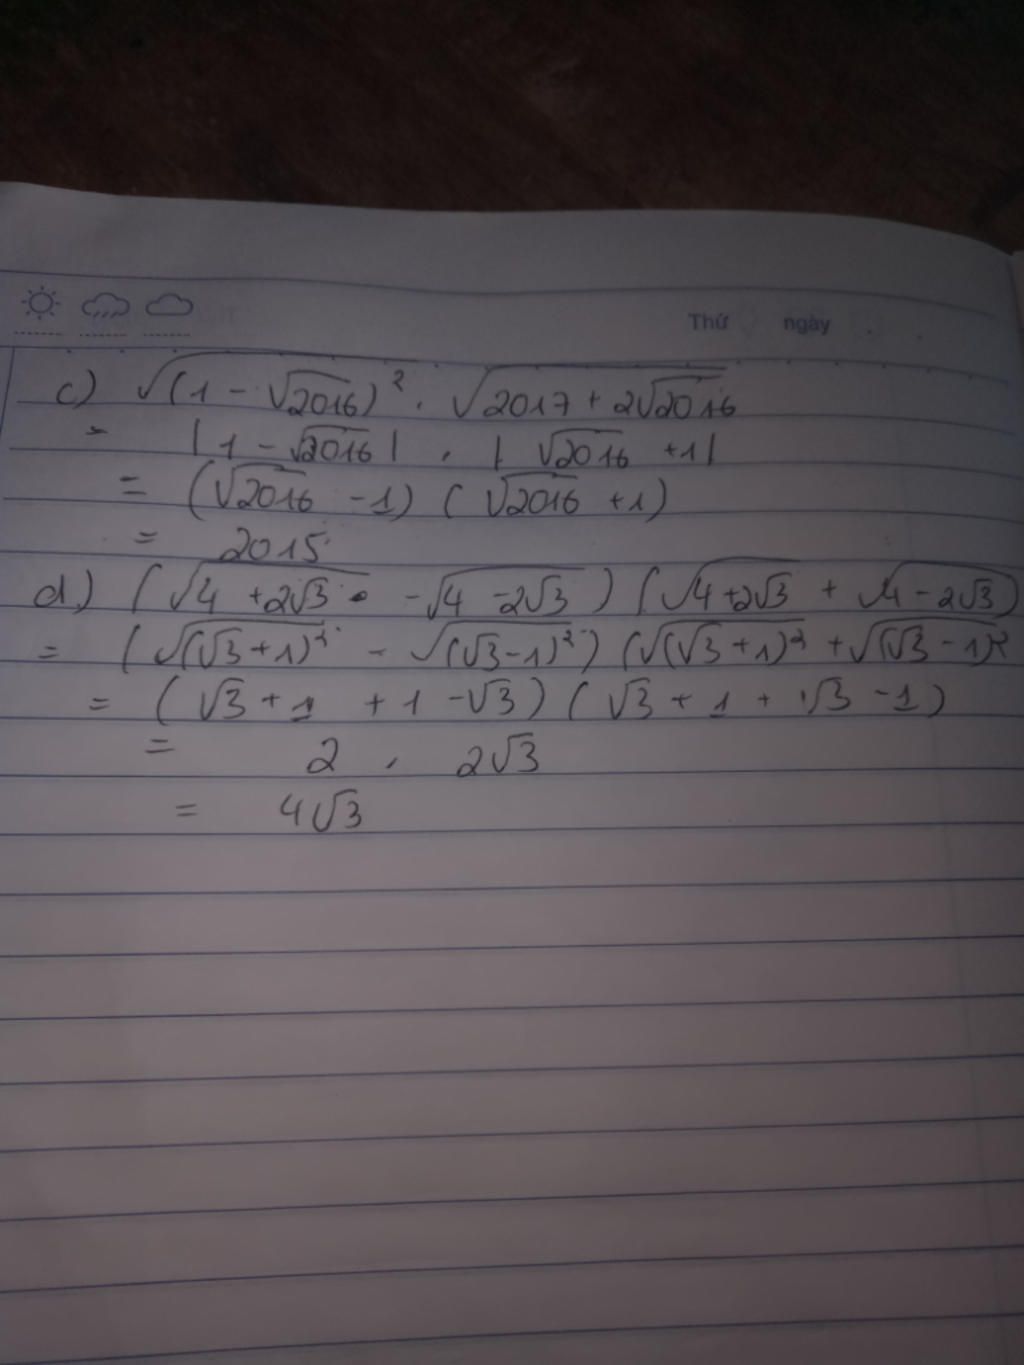 Thứ ngày
c) √(1 - √2016)² . √2017 + 2√2016
= |1 - √2016| . |√2016 + 1|
= (√2016 - 1) (√2016 + 1)
= 2015
d) (√4 + 2√3 - √4 - 2√3) (√4 + 2√3 + √4 - 2√3)
= (√(√3 + 1)² - √(√3 - 1)²) (√(√3 + 1)² + √(√3 - 1)²
= (√3 + 1 + 1 - √3) (√3 + 1 + √3 - 1)
= 2 . 2√3
= 4√3